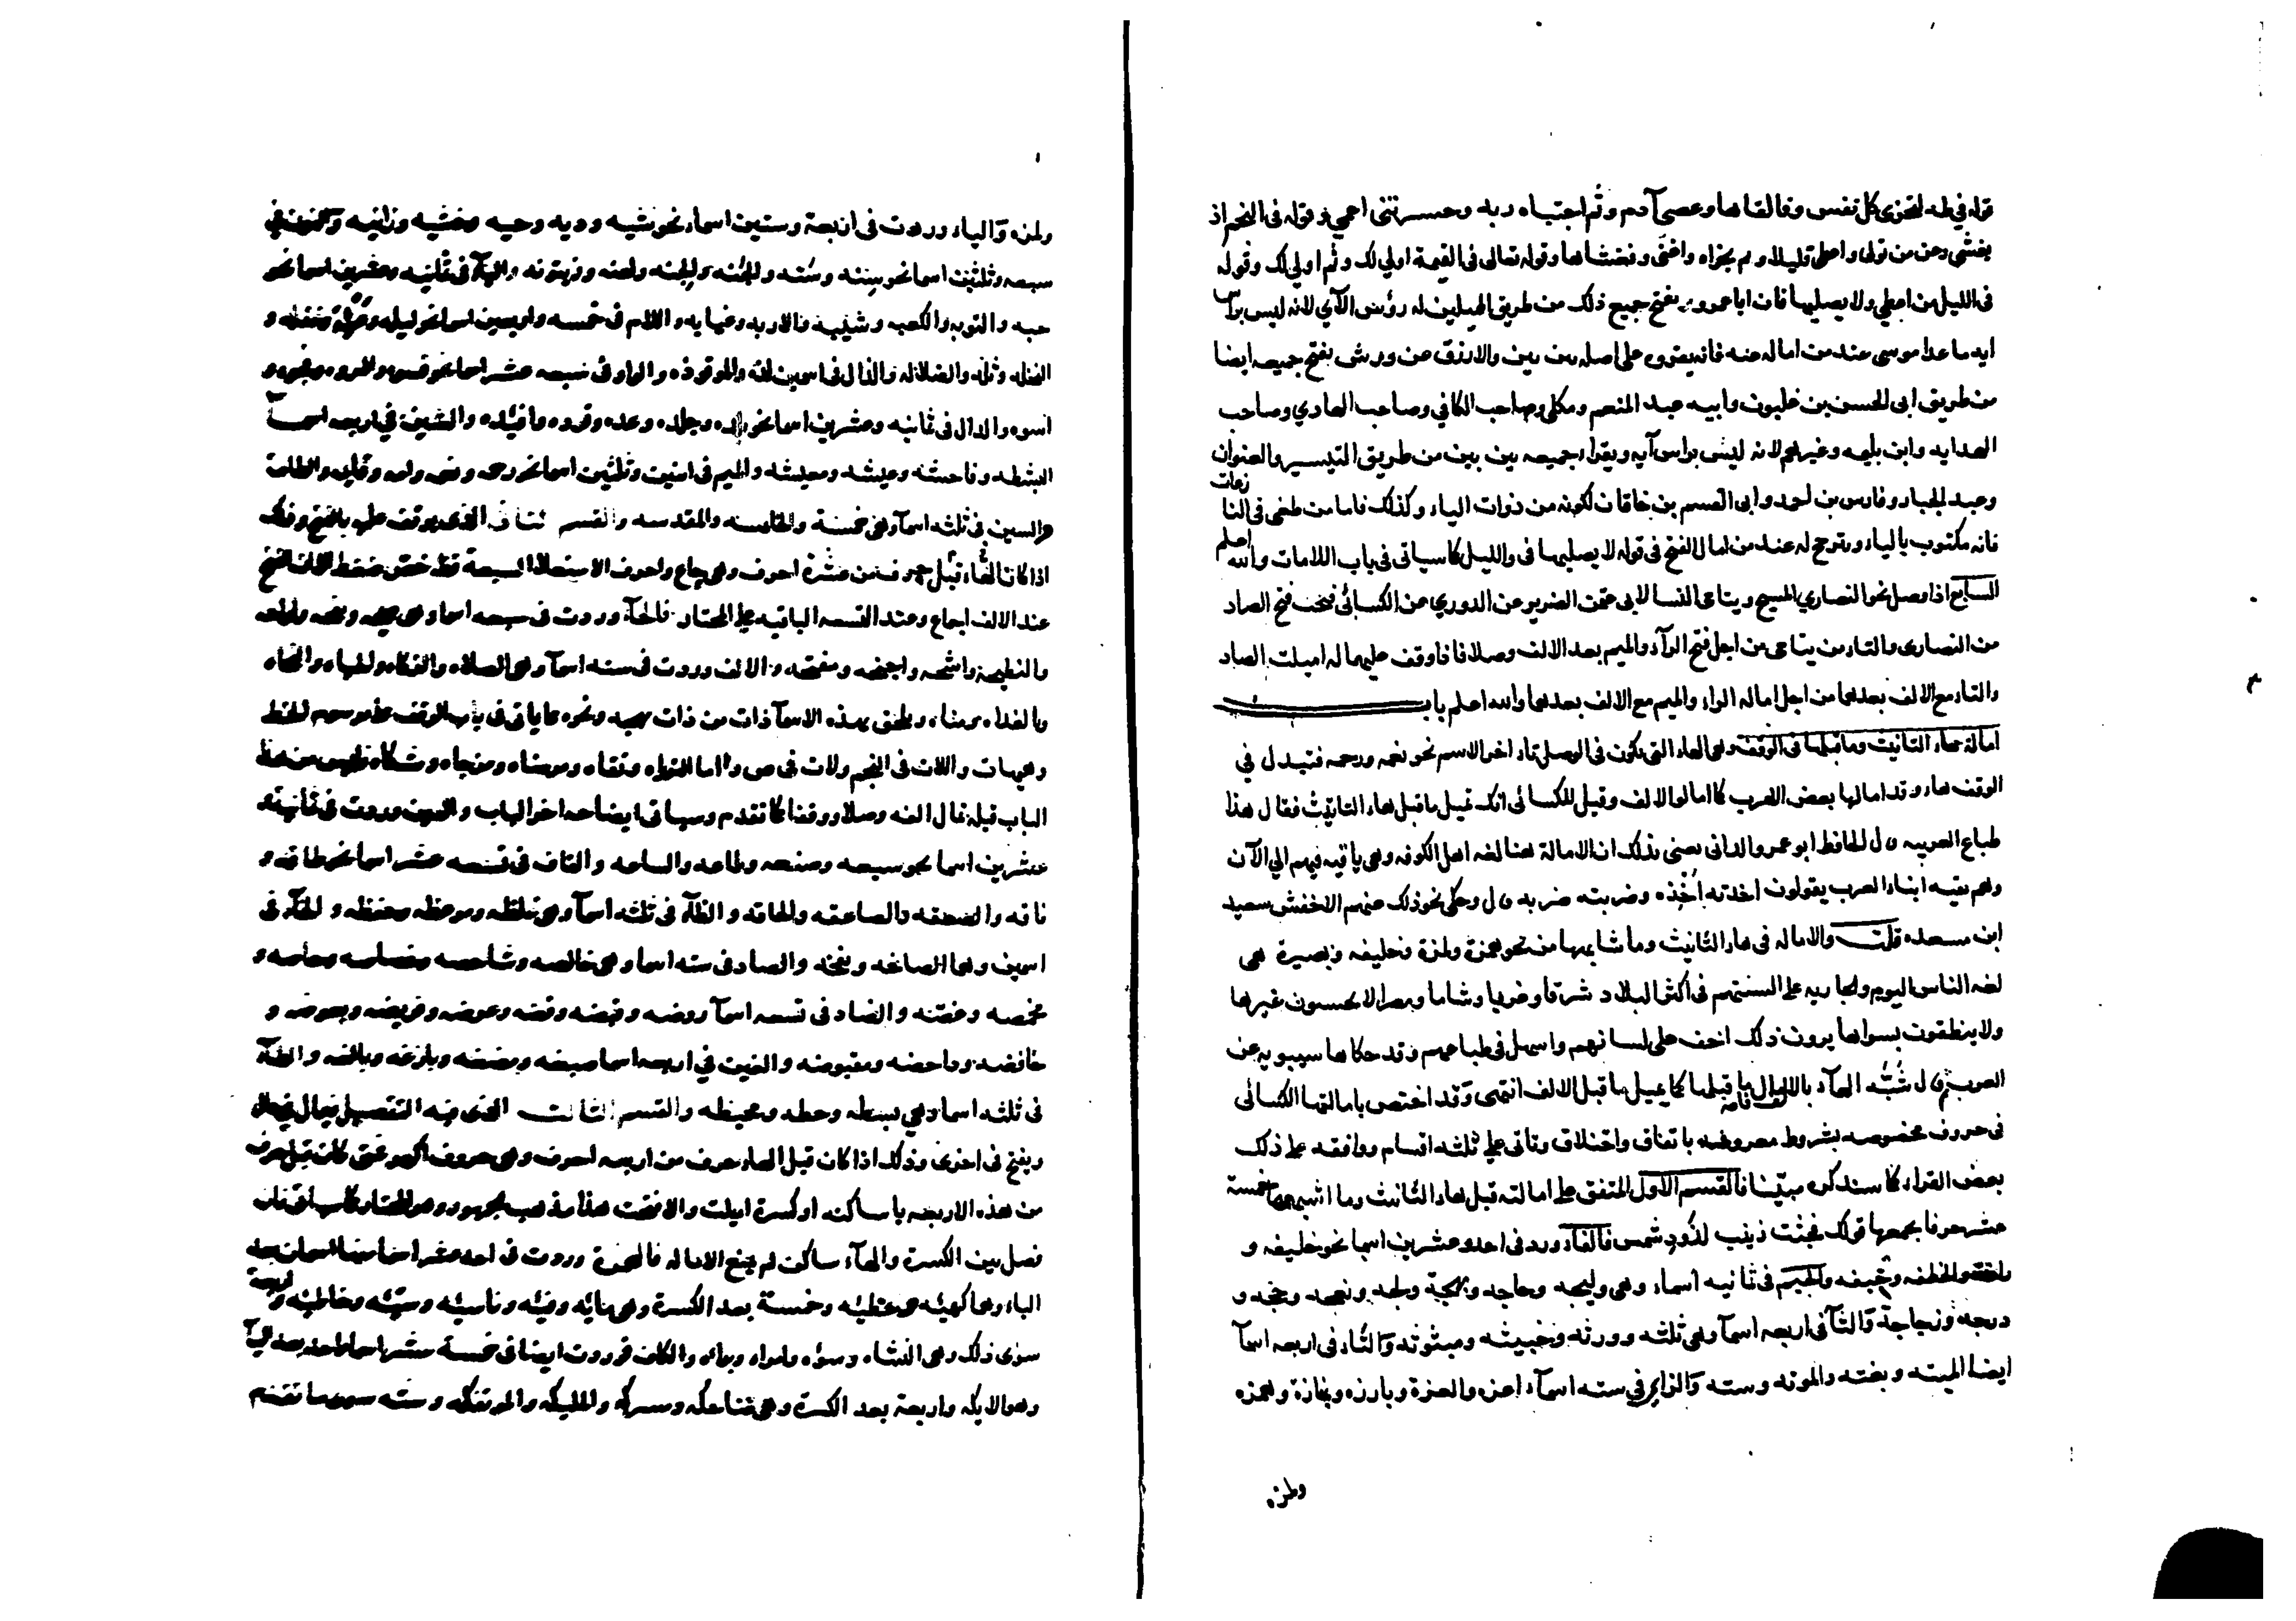 قوله في طه لتجزى كل نفس وفالقاها وعصى آدم وثم اجتباه ربه وحشرتني اعمى وقوله في النجم اذ
يغشى وعن من تولى واعطى قليلا وثم يجزاه واغنى وفغشاها وقوله تعالى في القيمة اولى لك وثم اولى لك وقوله
في الليل من اعطى ولا يصليها فان ابا عمرو يفتح جميع ذلك من طريق المميلين له رؤس الآي لانه ليس براس
ايه ما عدا موسى عند من اماله عنه فانه يقروه على اصله بين بين والازرق عن ورش يفتح جميعه ايضا
من طريق ابى الحسن بن غلبون وابيه عبد المنعم ومكي وصاحب الكافي وصاحب الهادي وصاحب
الهدايه وابن بليمه وغيرهم لانه ليس براس آيه ويقراء جميعه بين بين من طريق التيسير والعنوان
وعبد الجبار وفارس بن احمد وابى القسم بن خاقان لكونه من ذوات الياء وكذلك فاما من طغى في النازعات
فانه مكتوب بالياء ويترجح له عند من امال الفتح في قوله لا يصليها في والليل كما سياتى في باب اللامات والله اعلم
السابع اذا وصل نحو النصارى المسيح ويتامى النسا لابى عثمن الضرير عن الدوري عن الكسائى فيجب فتح الصاد
من النصارى والتاء من يتامى من اجل فتح الراء والميم بعد الالف وصلا فاذا وقف عليهما له اميلت الصاد
والتاء مع الالف بعدهما من اجل اماله الراء والميم مع الالف بعدهما والله اعلم باب
امالة هاء التانيث وما قبلها في الوقف وهي الهاء التي تكون في الوصل تاء اخر الاسم نحو نعمه ورحمه فتبدل في
الوقف هاء وقد امالها بعض العرب كما امالوا الالف وقيل للكسائى انك تميل ما قبل هاء التانيث فقال هذا
طباع العربيه قال الحافظ ابو عمرو الدانى يعنى بذلك ان الامالة هنا لغه اهل الكوفه وهي باقيه فيهم الى الآن
وهم بقيه ابناء العرب يقولون اخذته اخذه وضربته ضربه قال وحكى نحو ذلك عنهم الاخفش سعيد
ابن مسعده قلت والاماله في هاء التانيث وما شابهها من نحو همزة ولمزة وخليفه وبصيرة هي
لغه الناس اليوم والجاريه على السنتهم في اكثر البلاد شرقا وغربا وشاما ومصرا لا يحسنون غيرها
ولا ينطقون بسواها يرون ذلك اخف على لسانهم واسهل في طباعهم وقد حكاها سيبويه عن
العرب ثم قال شبه الهاء بالالف فامال ما قبلها كما يميل ما قبل الالف انتهى وقد اختص بامالتها الكسائى
في حروف مخصوصه بشروط معروفه باتفاق واختلاف وتاتى على ثلثه اقسام ووافقه على ذلك
بعض القراء كما سنذكره مبينا فالقسم الاول المتفق على امالته قبل هاء التانيث وما اشبهها خمسة
عشر حرفا يجمعها قولك فجثت زينب لذود شمس فالفاء ورد في احد وعشرين اسما نحو خليفه و
رافة والخطفه وخيفه والجيم في ثمانيه اسماء وهي وليجه وحاجه وبهجة ولجه ونعجه وحجه و
درجه وزجاجة والثاء في اربعه اسماء وهي ثلثه وورثه وخبيثه ومبثوثه والتاء في اربعه اسماء
ايضا الميته وبغته والموته وسته والزاي في سته اسماء اعزه والعزة وبارزه وبمفازة وهمزه
ولمزه
ولمزه والياء وردت في اربعة وستين اسماء نحو شيه وديه وحيه وخشيه وزانيه والنون في
سبعه وثلثين اسما نحو سنه وسنه والجنه والجنه ولعنه وزيتونه والباء في ثمانيه وعشرين اسما نحو
حبه والتوبه والكعبه وشيبه والاربه وغيابه واللام في خمسه واربعين اسما نحو ليله وغفله و
النخله وثله والضلاله والذال في اسمين لذه والموقوذه والواو في سبعه عشر اسما نحو قسوه والمروه
اسوه والدال في ثمانيه وعشرين اسما نحو بلده وجلده وعده وقروه وافئده والشين في اربعه اسماء
البطشه وفاحشه وعيشه ومعيشه والميم في اثنين وثلثين اسما نحو رحمه ونعمه وامه وقايمه والطامة
والسين في ثلثه اسماء وهي خمسة والخامسه والمقدسه والقسم الثانى الذى يوقف عليه بالفتح وذلك
اذا كان الهاء قبل حرف من عشرة احرف وهي حاع واحرف الاستعلاء السبعة قظ خص ضغط الالف الفتح
عند الالف اجماع وعند التسعه الباقيه على المختار فالحاء وردت في سبعه اسماء وهي صيحه ونفحه ولواحه
والنطيحة واشحه واجنحه ومفتحه والالف وردت في سته اسماء وهي الصلاه والزكاه والحياه والنجاه
والغداه ومناه ويلحق بهذه الاسماء ذات من ذات بهجه ونحوه مما ياتى في باب الوقف على مرسوم الخط
وهيهات واللات في النجم ولات في ص واما التوراه وتقاه ومرضاه ومزجاه ومشكاه فليس من هذا
الباب قبله تمال الفه وصلا ووقفا كما تقدم وسياتى ايضاحه اخر الباب والعين وردت في ثمانيه و
عشرين اسما نحو سبعه وصنعه وطاعه والساعه والقاف في تسعه عشر اسما نحو طاقه و
ناقه والصعقه والصاعقه والحاقه والظاء في ثلثه اسماء وهي غلظه وموعظه وحفظه والخاء في
اسمين وهما الصاخه ونفخه والصاد في سته اسما وهي خالصه وشاخصه وخصاصه وخاصه و
مخمصه وغصه والضاد في تسعه اسماء روضه وقبضه وفضه وعرضه وفريضه وبعوضه و
خافضه وداحضه ومقبوضه والغين في اربعه اسما صبغه ومضغه وبازغه وبالغه والطاء
في ثلثه اسماء وهي بسطه وحطه ومحيطه والقسم الثالث الذى فيه التفصيل فيمال في حال
ويفتح في اخرى وذلك اذا كان قبل الهاء حرف من اربعه احرف وهي حروف اكهر فمتى كان قبل حرف
من هذه الاربعه ياء ساكنه او كسرة اميلت والا فتحت هذا مذهب الجمهور وهو المختار كما سياتى فان
فصل بين الكسرة والهاء ساكن لم يمنع الاماله فالهمزة وردت في احد عشر اسما منها اسمان بعد
الياء وهما كهيئه وخطيئه وخمسة بعد الكسرة وهي مائه وفئه وناشئه وسيئه وخاطئه واربعة
سوى ذلك وهي النشاه وسؤه وامراه وبراه والكاف فوردت ايضا في خمسة عشر اسما واحد بعد الياء
وهو الايكه واربعة بعد الكسرة وهي ضاحكه ومشركه والمليكه والمؤتفكه وسته سوى ما تقدم